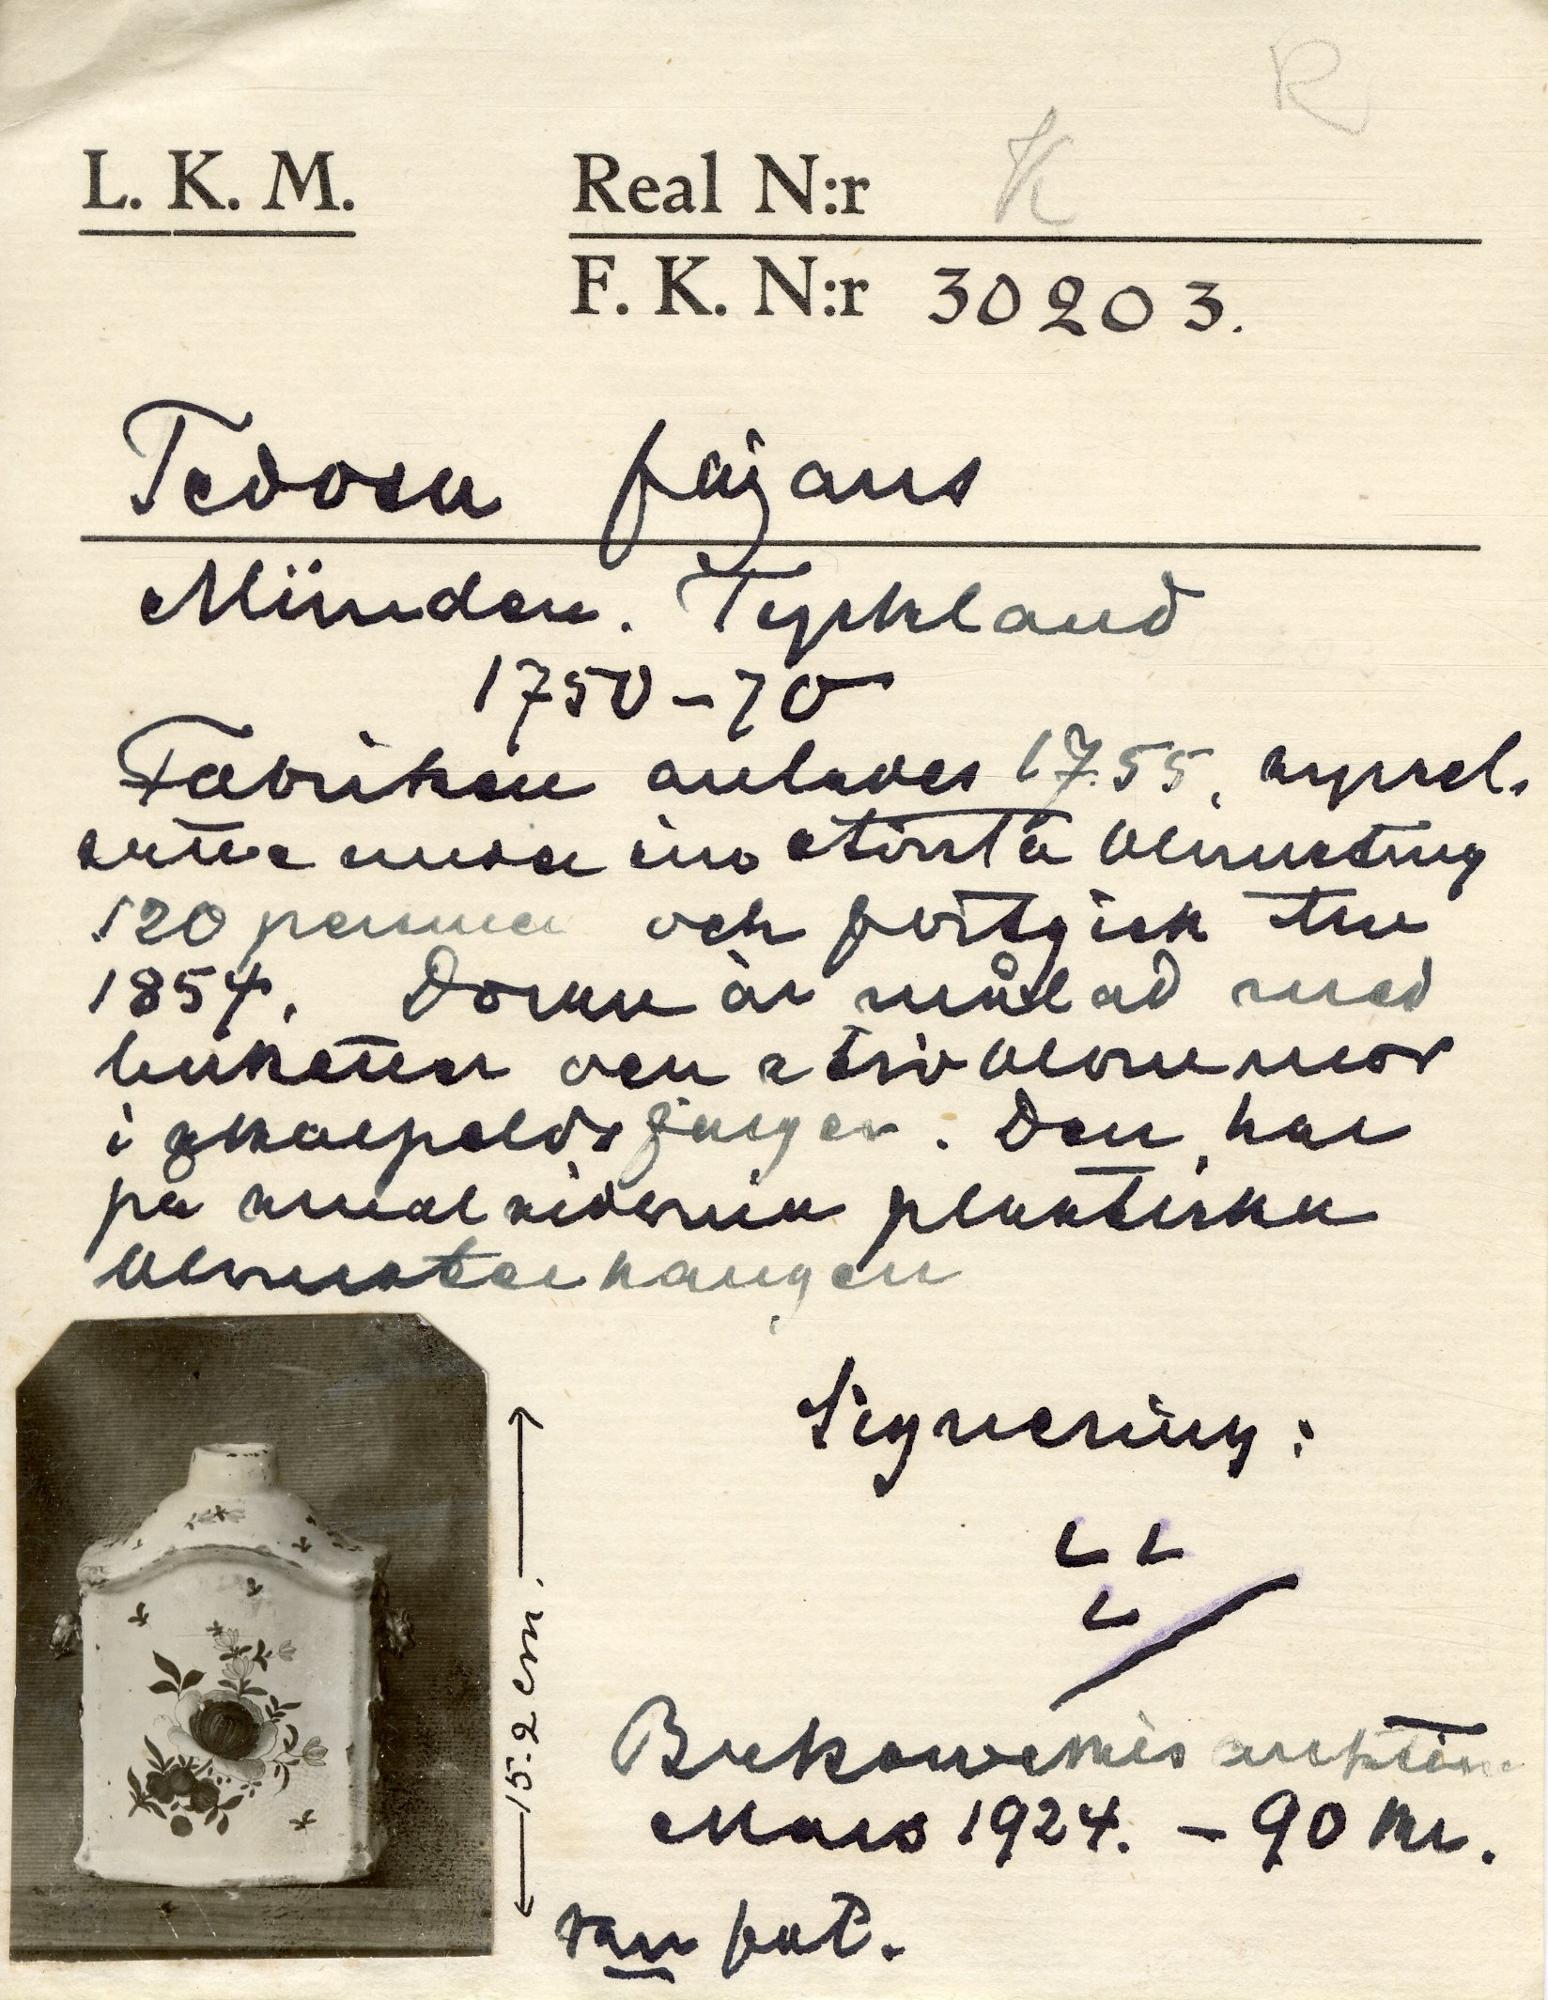 R
L. K. M.
Real N:r K
F. K. N:r 30203.
Tedosa fajans
Münden. Tyskland
1750-70
Fabriken anlades 1755, syssel-
satte under sin största blomstring
120 personer och fortgick till
1854. Dosan är målad med
buketter och ströblommor
i skarpeldsfärger. Den har
på smalsidorna plastiska
blomsterhängen
Signering:
L L
L
15.2 cm.
Bukowskis auktion
Mars 1924. - 90 kr.
fat.